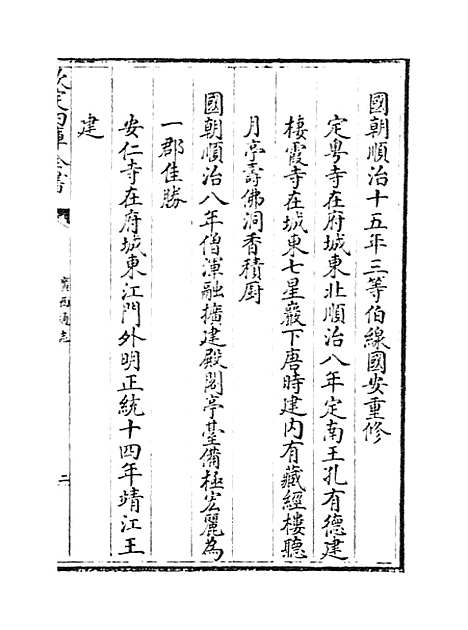 國朝順治十五年三等伯線國安重修
定粤寺在府城東北順治八年定南王孔有德建
棲霞寺在城東七星巖下唐時建内有藏經樓聽
月亭壽佛洞香積厨
國朝順治八年僧渾融擴建殿閣亭臺備極宏麗為
一郡佳勝
安仁寺在府城東江門外明正統十四年靖江王
建
欽定四庫全書
廣西通志
二